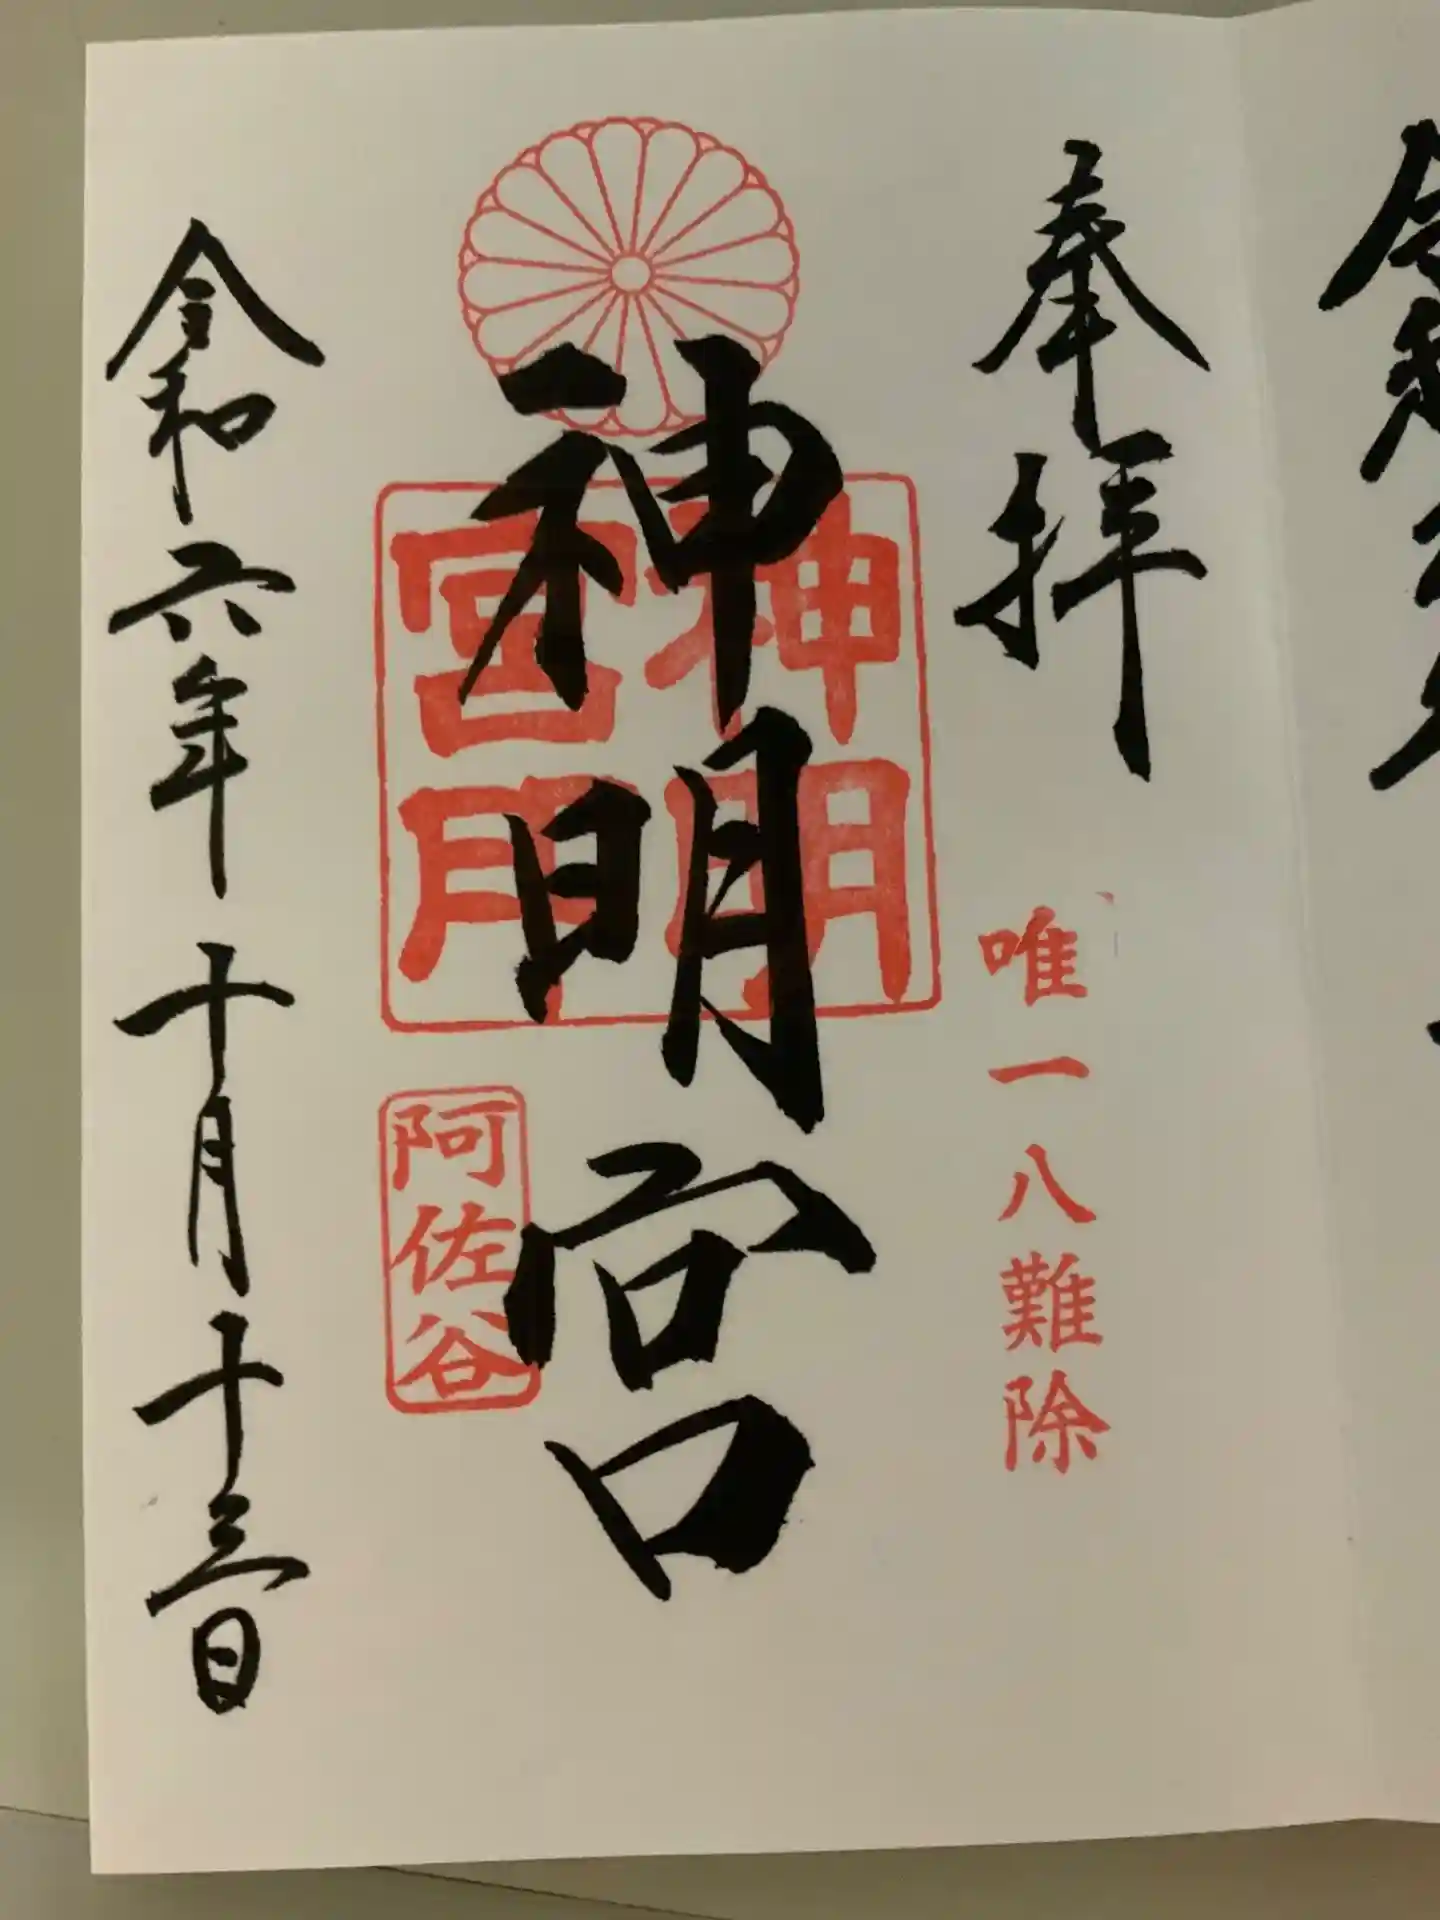 奉拝
唯一八難除
神明宮
神明
宮印
阿佐谷
令和六年十月十三日